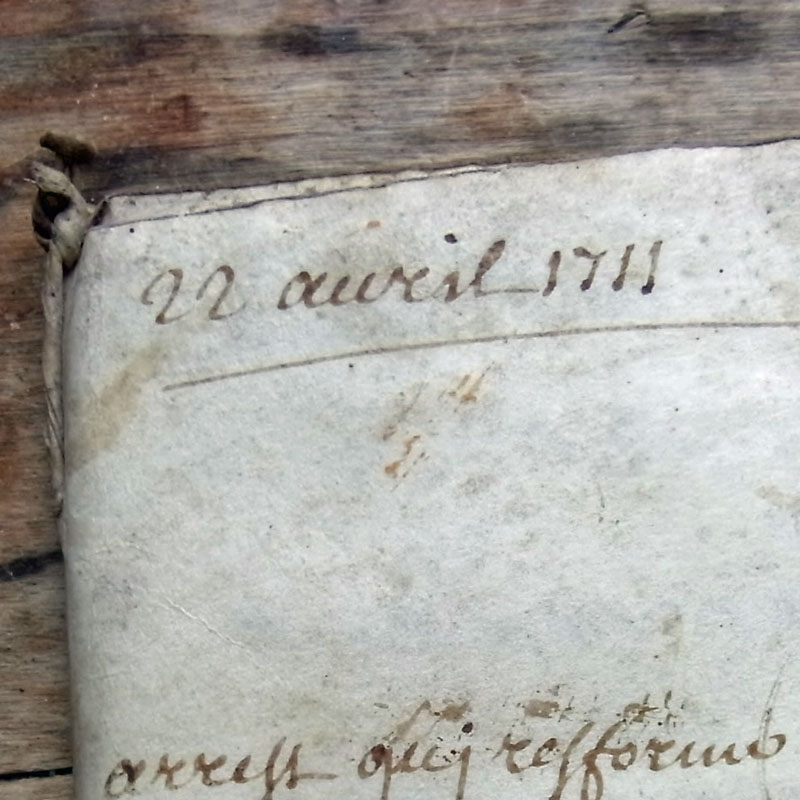 22 auvril 1711
arrest quj refforme